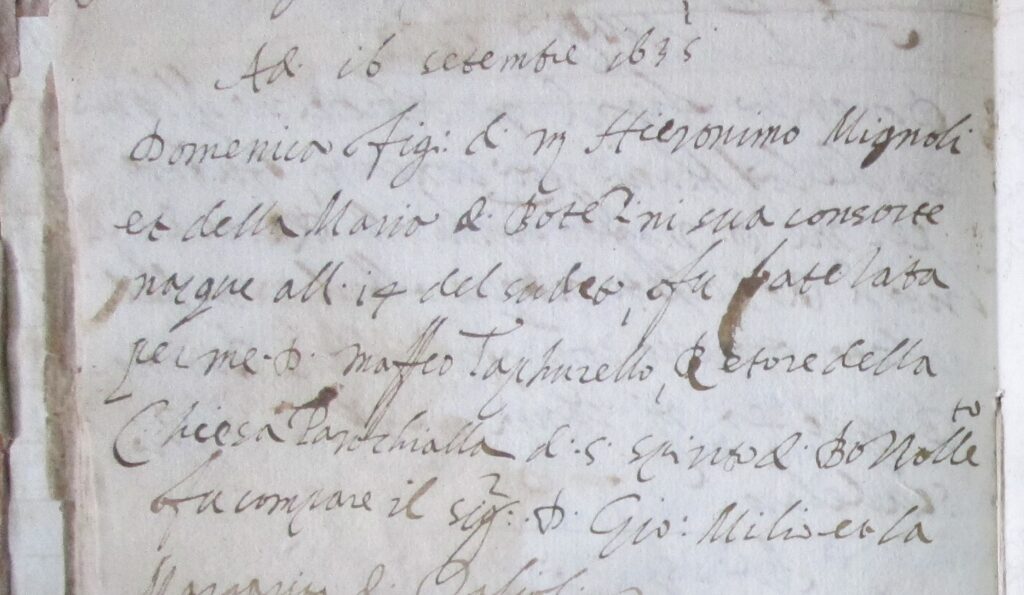 Ad. 16 setembre 1635
Domenica fig: d. m Hieronimo Mignoli
et della Maria d. sua consorte
nacque all. 14 del sudet, fu batezata
per me D. Maffeo Taphurello, Retore della
Chiesa Parochialla d. S. Spirito d.
fu compare il sigr. D. Gio: Milio et la